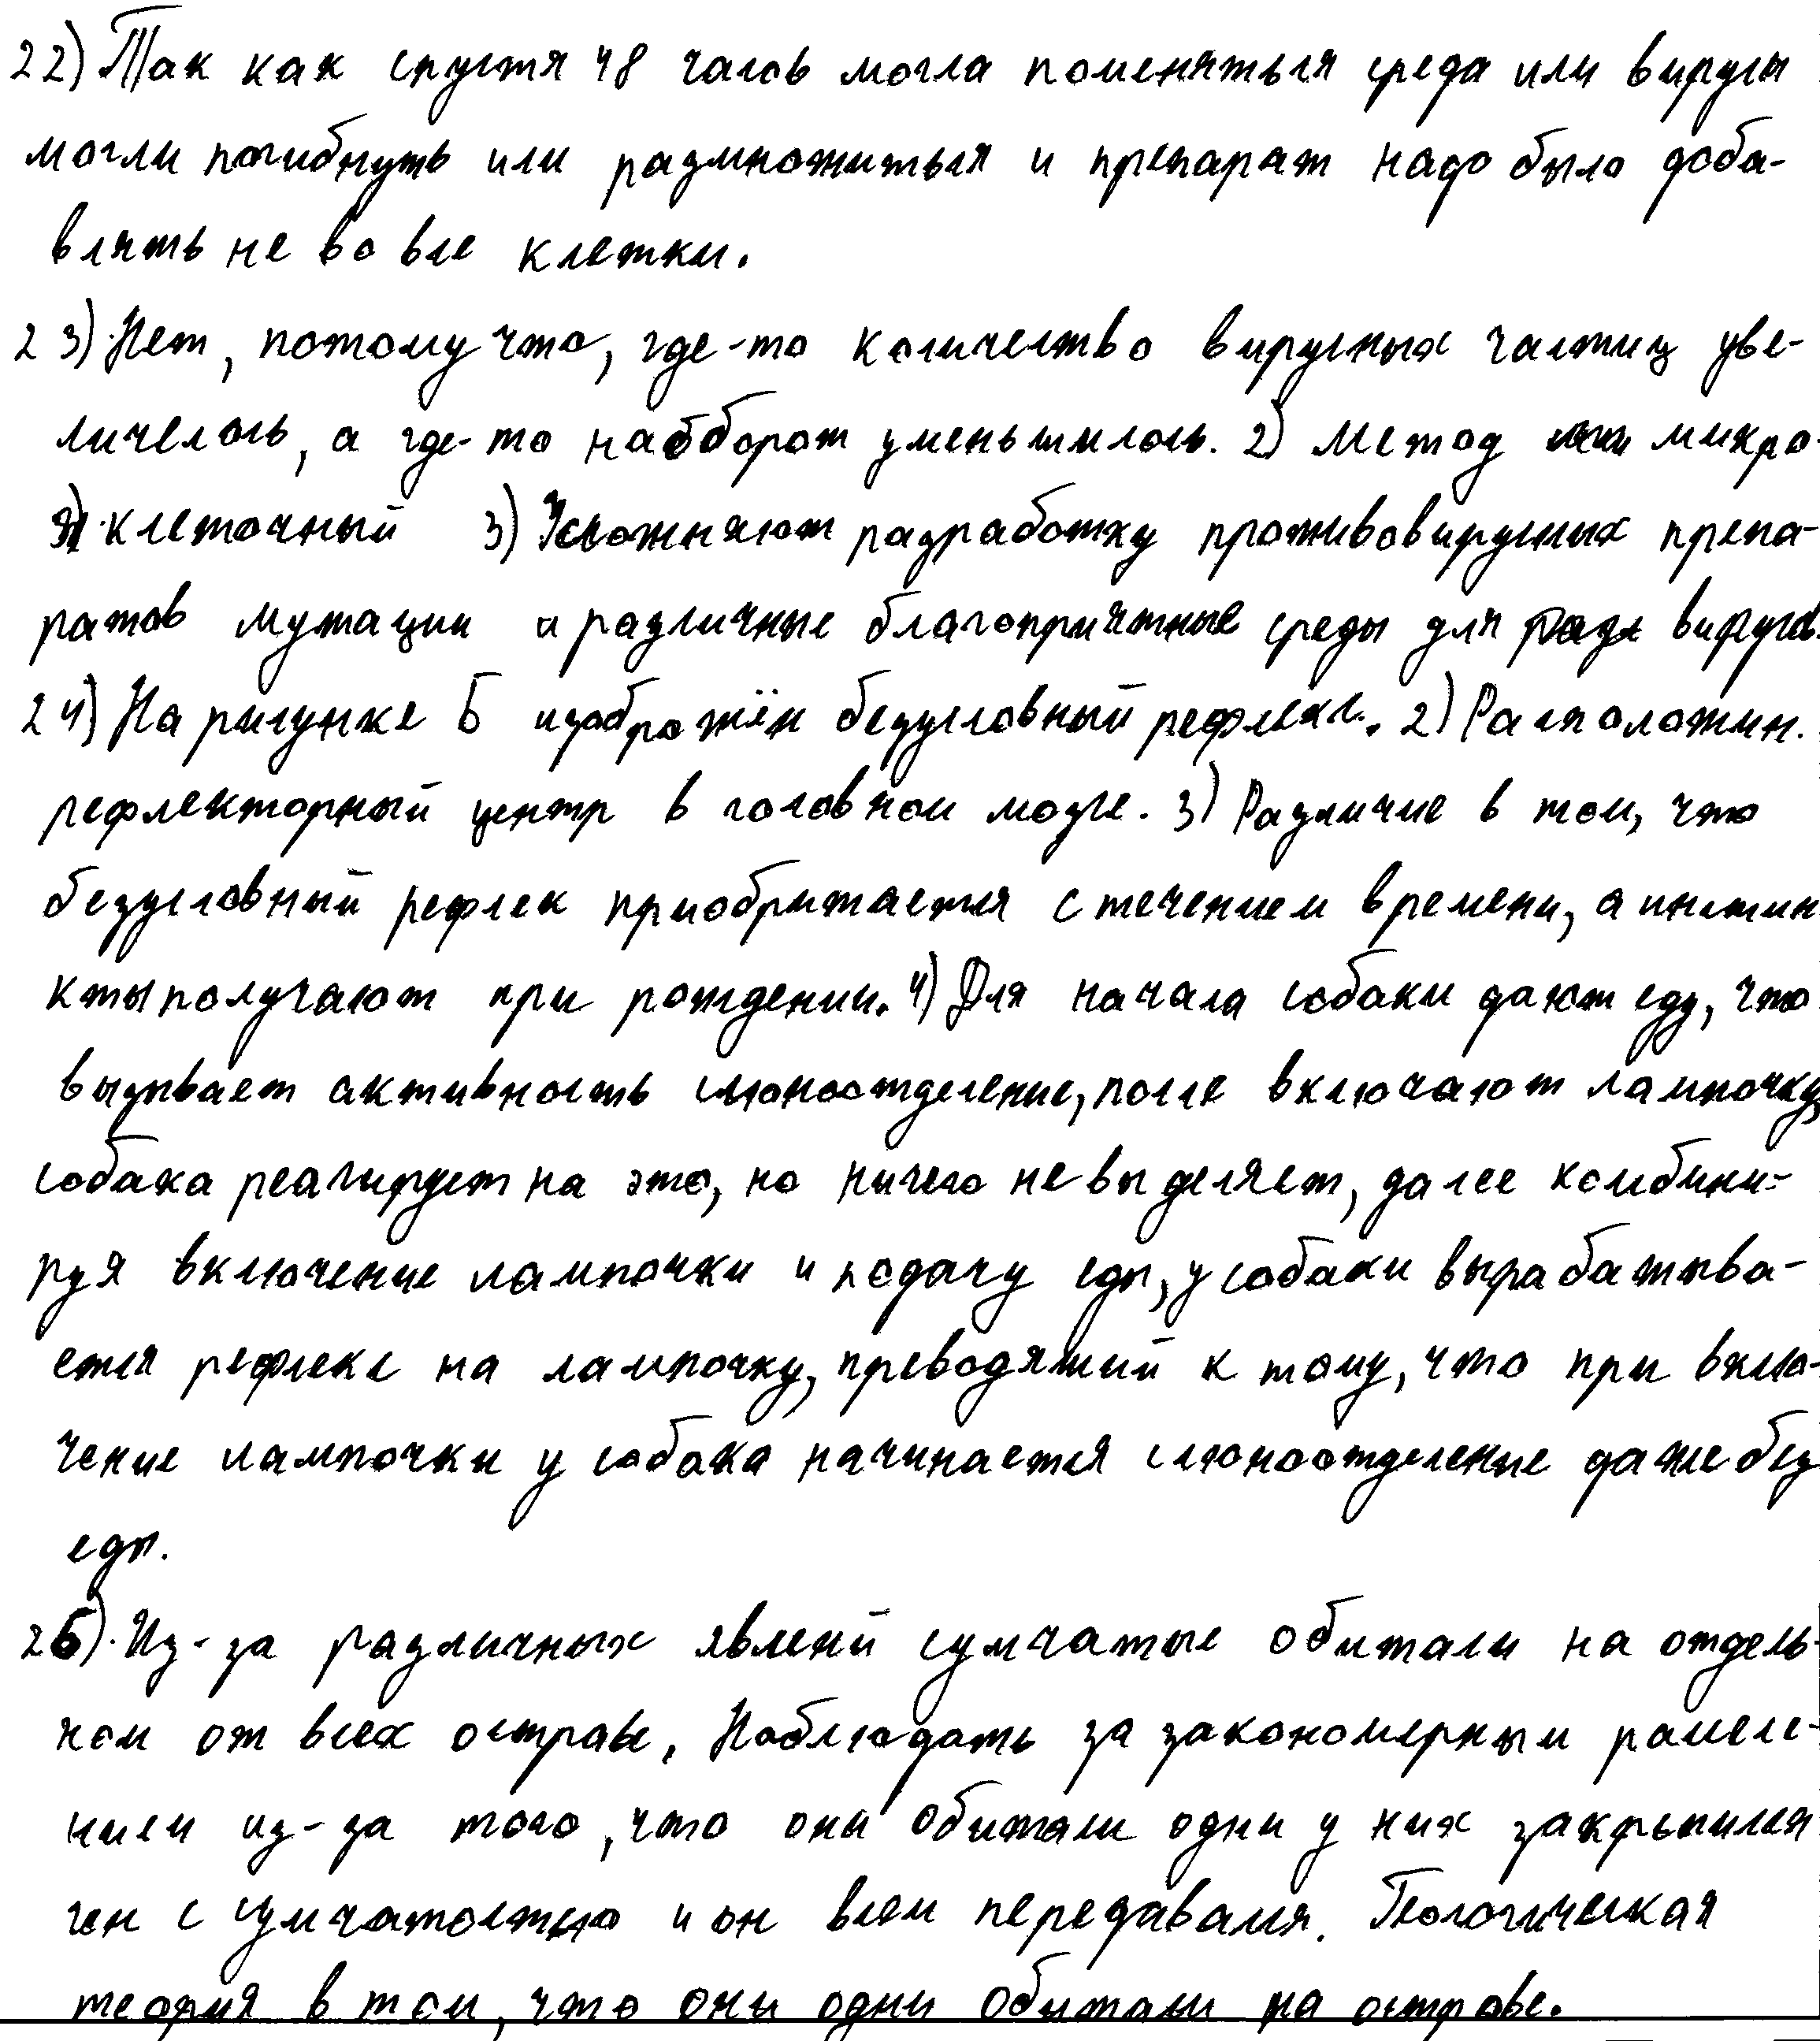 22) Так как спустя 48 часов могла поменяться среда или вирусы
могли погибнуть или размножиться и препарат надо было доба-
влять не во все клетки.
23) Нет, потому что, где-то количество вирусных частиц уве-
личелось, а где-то наоборот уменьшилось. 2) Метод микро-
клеточный 3) Усложняют разработку противовирусных препа-
ратов мутации и различные благоприятные среды для вирусов.
24) На рисунке Б изображён безусловный рефлекс. 2) Расположен.
рефлекторный центр в головном мозге. 3) Различие в том, что
безусловный рефлек приобритается с течением времени, а инстин
кты получают при рождении. 4) Для начала собаки дают еду, что
вызывает активность слюноотделение, после включают лампочку,
собака реагирует на это, но ничего не выделяет, далее комбини-
руя включение лампочки и подачу еды, у собаки вырабатыва-
ется рефлекс на лампочку, преводящий к тому, что при вклю-
чение лампочки у собака начинается слюноотделение даже без
еды.
26) Из-за различных явлений сумчатые обитали на отдель-
ном от всех острове, Наблюдать за закономерным
нием из-за того, что они обитали одни у них закрепился
ген с сумчатостью и он всем передавался. Геологическая
теория в том, что они одни обитали на острове.